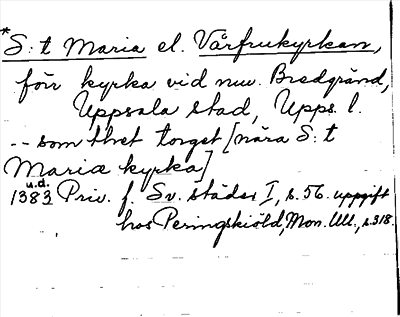 *S:t Maria el. Vårfrukyrkan,
förr kyrka vid nuv. Bredgränd,
Uppsala stad, Upps. l.
-- som thet torget [nära S:t
Maria kyrka]
u.d.
1383 Priv. f. Sv. städer I, s. 56. uppgift
hos Peringskiöld, Mon. Ull., s. 318.